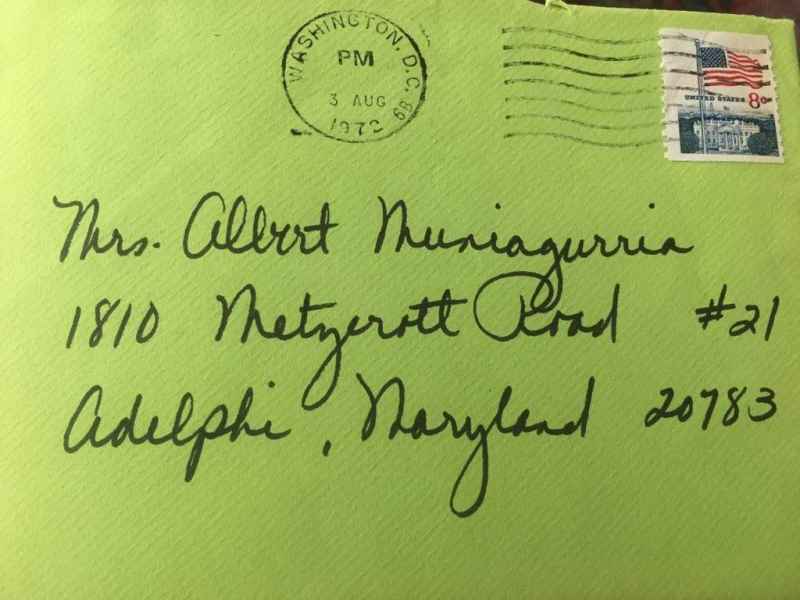 WASHINGTON, D.C. 89
PM
3 AUG
1972
UNITED STATES 8c
Mrs. Albert Muniagurria
1810 Metzerott Road #21
Adelphi, Maryland 20783